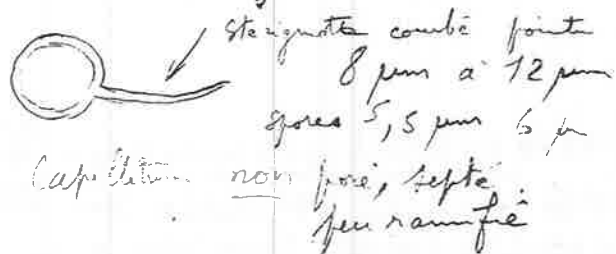 Stérigmate courbé pointu
8 µm à 12 µm
spores 5,5 µm 6 µm
Capillitium non poré, septé
peu ramifié